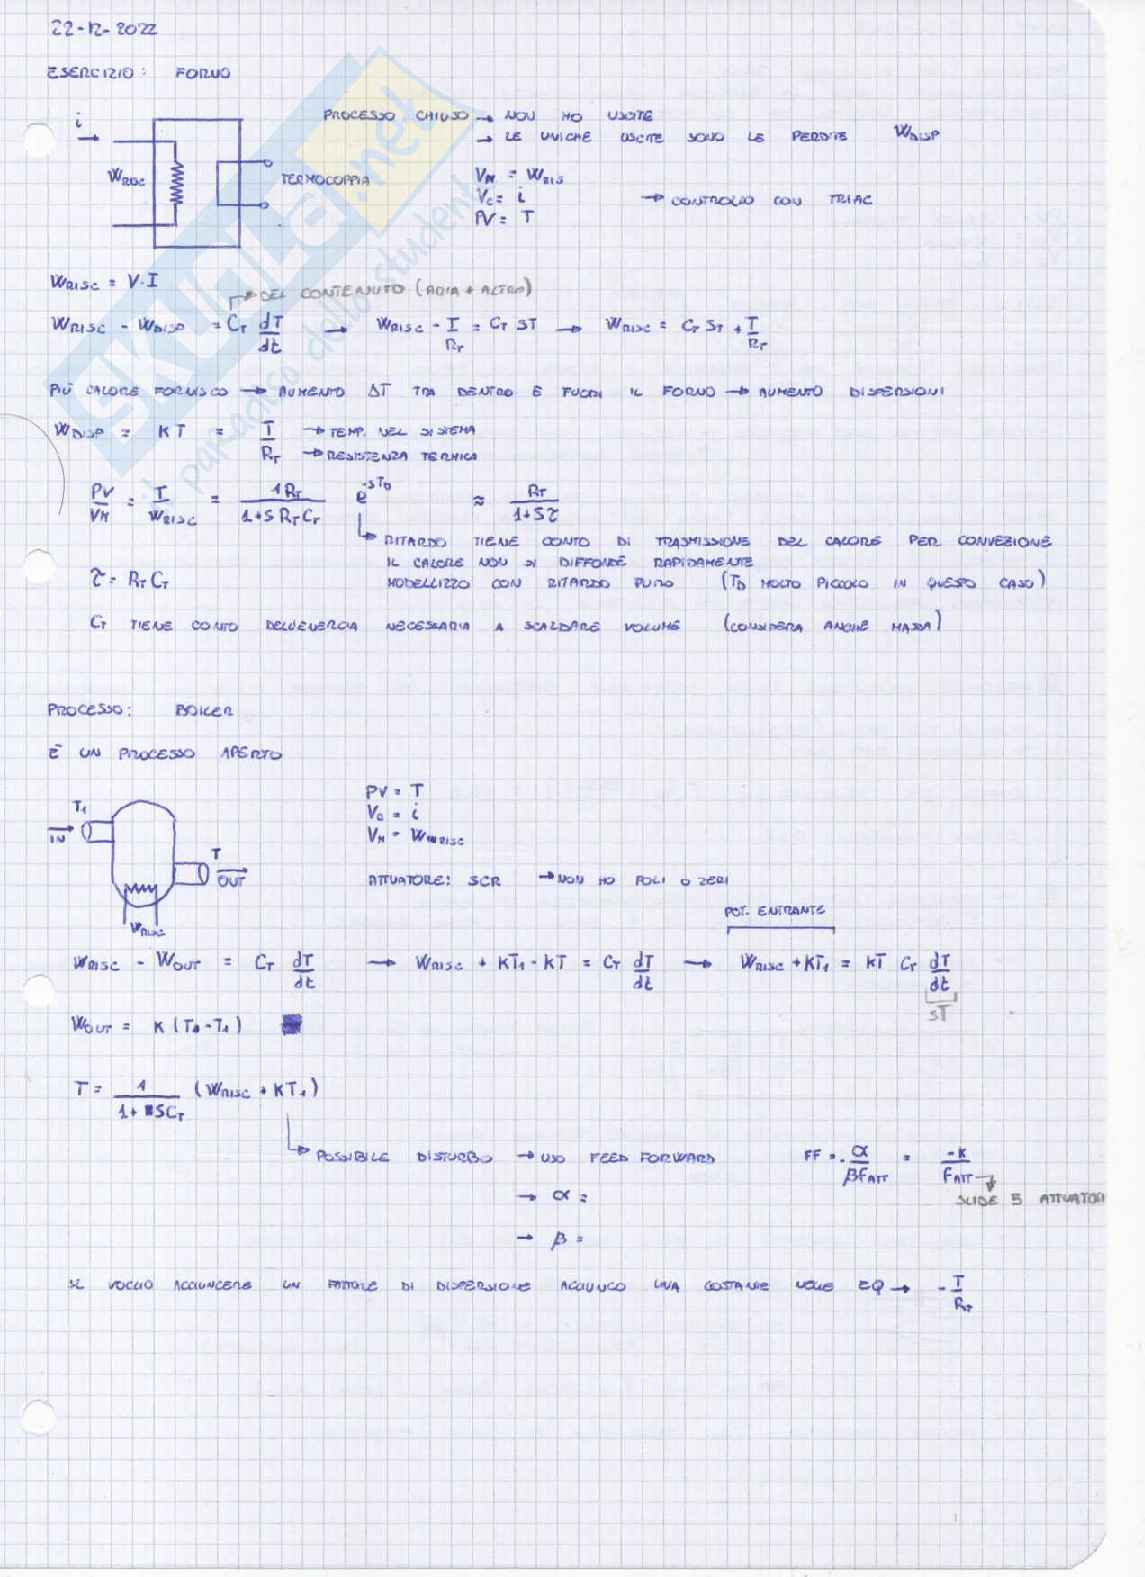 22-12-2022
ESERCIZIO: FORNO
i
WRISC
TERMOCOPPIA
PROCESSO CHIUSO → NON HO USCITE
→ LE UNICHE USCITE SONO LE PERDITE WDISP
VM = WRIS
VC = i → CONTROLLO CON TRIAC
PV = T
WRISC = V·I
DEL CONTENUTO (ARIA + ALTRO)
WRISC - WDISP = CT dT/dt → WRISC - T/RT = CT ST → WRISC = CT ST + T/RT
PIÙ CALORE FORNISCO → AUMENTO ΔT TRA DENTRO E FUORI IL FORNO → AUMENTO DISPERSIONI
WDISP = KT = T/RT → TEMP. NEL SISTEMA
→ RESISTENZA TERMICA
PV/VM = T/WRISC = 1RT/(1+S RT CT) e^-STD ≈ RT/(1+Sτ)
RITARDO TIENE CONTO DI TRASMISSIONE DEL CALORE PER CONVEZIONE
IL CALORE NON SI DIFFONDE RAPIDAMENTE
τ = RT CT MODELLIZZO CON RITARDO PURO (TD MOLTO PICCOLO IN QUESTO CASO)
CT TIENE CONTO DELL'ENERGIA NECESSARIA A SCALDARE VOLUME (CONSIDERA ANCHE MASSA)
PROCESSO: BOILER
È UN PROCESSO APERTO
T1
IN
T
OUT
WRISC
PV = T
VC = i
VM = WINRISC
ATTUATORE: SCR → NON HO POLI O ZERI
POT. ENTRANTE
WRISC - WOUT = CT dT/dt → WRISC + KT1 - KT = CT dT/dt → WRISC + KT1 = KT CT dT/dt
ST
WOUT = K (T - T1)
T = 1/(1+SCT) (WRISC + KT1)
POSSIBILE DISTURBO → USO FEED FORWARD FF = - α/βFATT = -K/FATT
SLIDE 5 ATTUATORI
→ α =
→ β =
SE VOGLIO AGGIUNGERE UN FATTORE DI DISPERSIONE AGGIUNGO UNA COSTANTE NELLE EQ → - T/RT